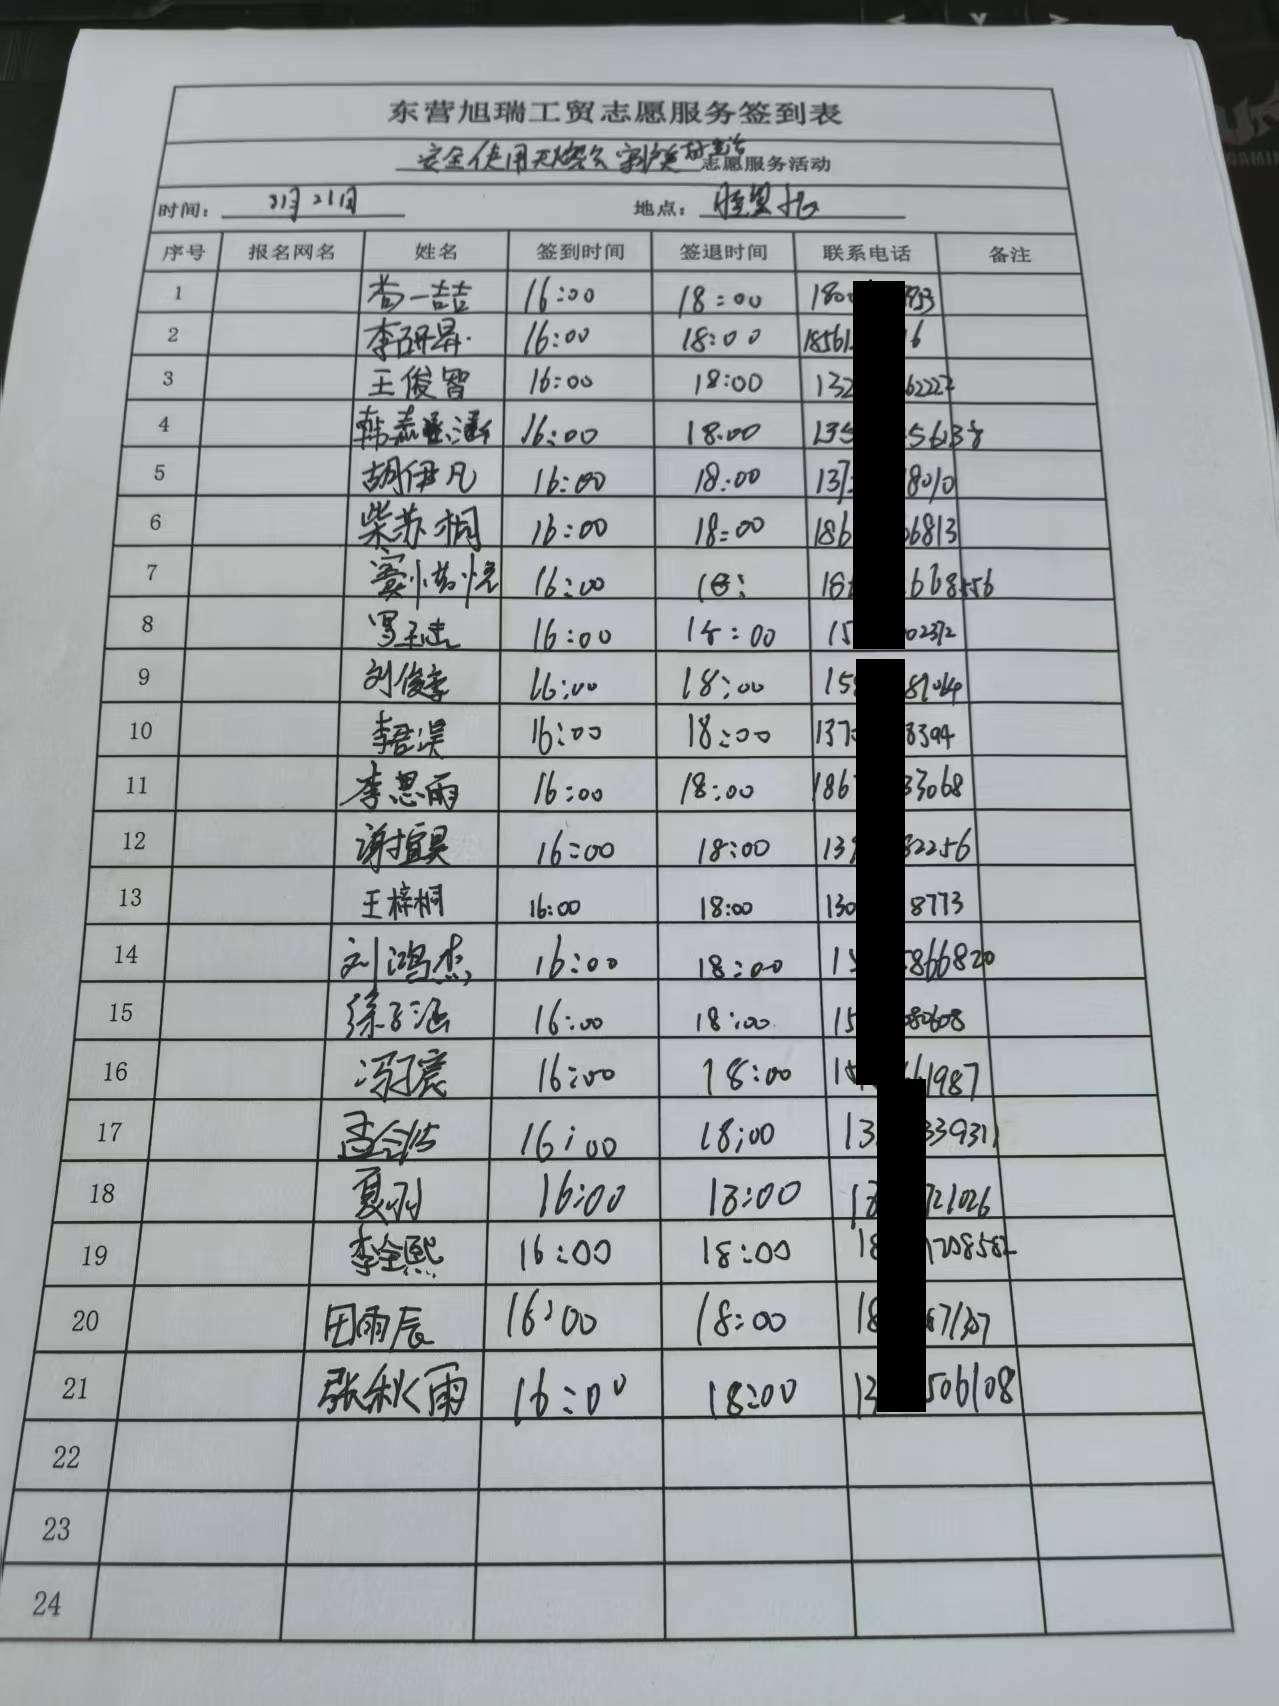 东营旭瑞工贸志愿服务签到表
安全使用天然气 志愿服务活动
时间： 月21日 地点：
序号 报名网名 姓名 签到时间 签退时间 联系电话 备注
1 尚一喆 16:00 18:00 180 933
2 李研昇 16:00 18:00 1856 6
3 王俊智 16:00 18:00 132 62222
4 韩 涵 16:00 18:00 135 5638
5 胡伊凡 16:00 18:00 137 8010
6 柴苏桐 16:00 18:00 186 06813
7 16:00 18: 18 668556
8 16:00 18:00 15 02372
9 刘俊 16:00 18:00 15 87064
10 李君昊 16:00 18:00 137 8394
11 李思雨 16:00 18:00 186 33068
12 谢 昊 16:00 18:00 139 82256
13 王梓桐 16:00 18:00 130 8773
14 刘鸿杰 16:00 18:00 15 866820
15 徐子涵 16:00 18:00 15 080608
16 冯 震 16:00 18:00 15 61987
17 孟 16:00 18:00 13 339311
18 夏 16:00 18:00 721026
19 李金熙 16:00 18:00 18
20 田雨辰 16:00 18:00 18 71307
21 张秋雨 16:00 18:00 13 506108
22
23
24